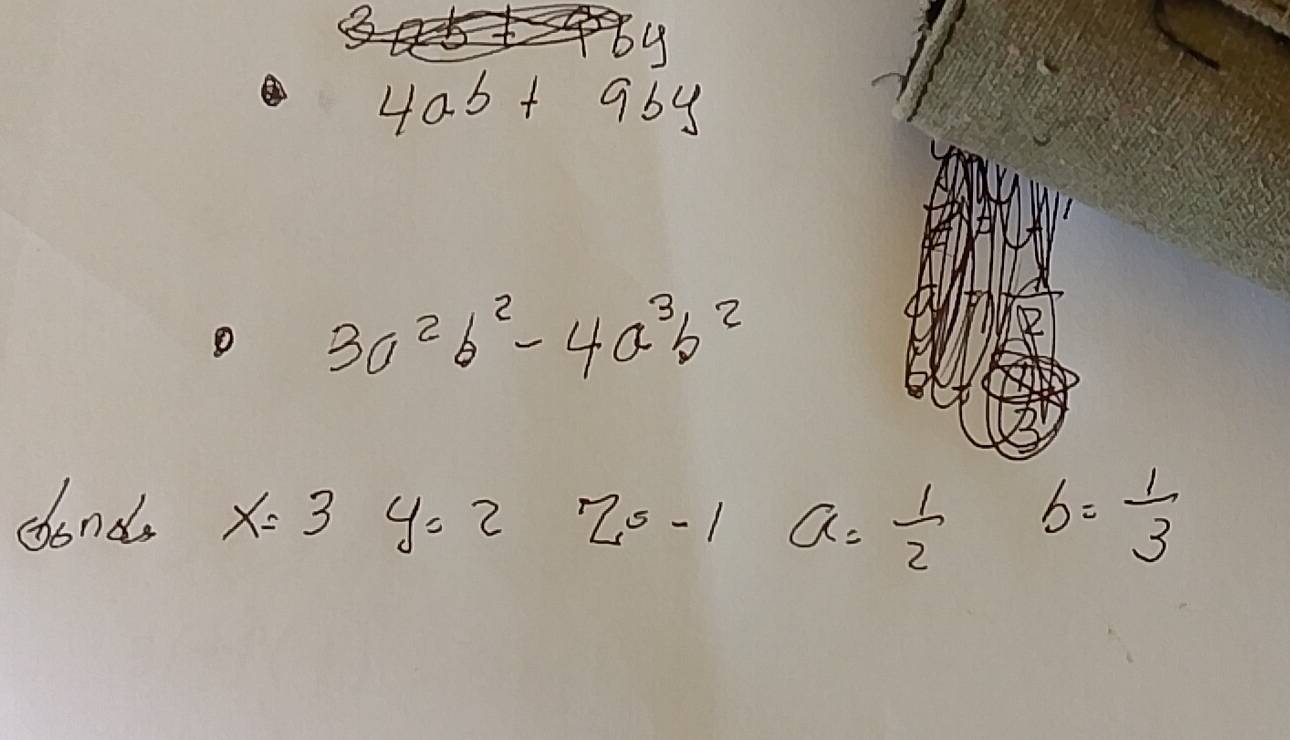 4ab + 9by
3a²b² - 4a³b²
donde x = 3 y = 2 z = -1 a = 1/2 b = 1/3